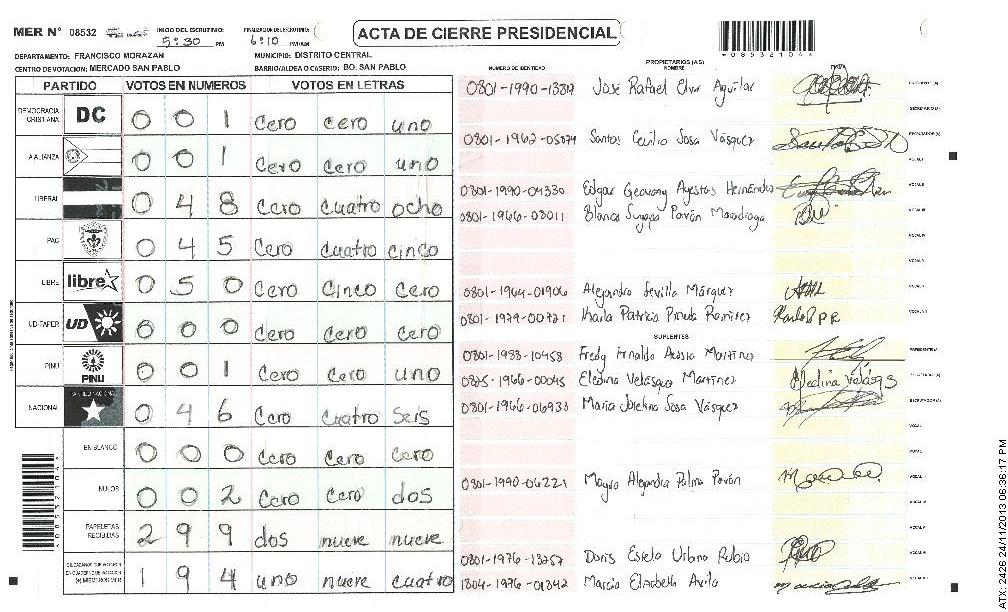 MER N° 08532 INICIO DEL ESCRUTINIO: 5:30 PM FINALIZACION DEL ESCRUTINIO: 6:10 PM/AM ACTA DE CIERRE PRESIDENCIAL
*08532104*
DEPARTAMENTO: FRANCISCO MORAZAN MUNICIPIO: DISTRITO CENTRAL
CENTRO DE VOTACION: MERCADO SAN PABLO BARRIO/ALDEA O CASERIO: BO. SAN PABLO
PARTIDO VOTOS EN NUMEROS VOTOS EN LETRAS
DEMOCRACIA CRISTIANA DC 0 0 1 cero cero uno
ALIANZA 0 0 1 cero cero uno
LIBERAL 0 4 8 cero cuatro ocho
PAC 0 4 5 cero cuatro cinco
LIBRE libre 0 5 0 cero cinco cero
UD-FAPER UD 0 0 0 cero cero cero
PINU PINU 0 0 1 cero cero uno
NACIONAL 0 4 6 cero cuatro seis
EN BLANCO 0 0 0 cero cero cero
NULOS 0 0 2 cero cero dos
PAPELETAS RECIBIDAS 2 9 9 dos nueve nueve
1 9 4 uno nueve cuatro
NUMERO DE IDENTIDAD PROPIETARIOS (AS) NOMBRE FIRMA
José Rafael Aguilar
Santos Cecilio Sosa Vásquez
0801-1990-04330 Edgar Geovany Ayestas Hernández
0801-1966-03011 Blanca Suyapa Pavón Mondragon
0801-1964-01906 Alejandro Sevilla Márquez
0801-1979-00721 Karla Patricia Pineda Ramirez Karla P P R
SUPLENTES
0801-1983-10458 Fredy Arnaldo Martinez
0825-1966-00045 Eledina Velásquez Martínez
0801-1966-06933 Maria Sosa Vásquez
0801-1990-06221 Mayra Alejandra Palma Pavón
0801-1976-13257 Doris Estela Urbina Rubio
1804-1976-01842 Marcia Elizabeth Avila
ATX: 2426 24/11/2013 06:36:17 PM